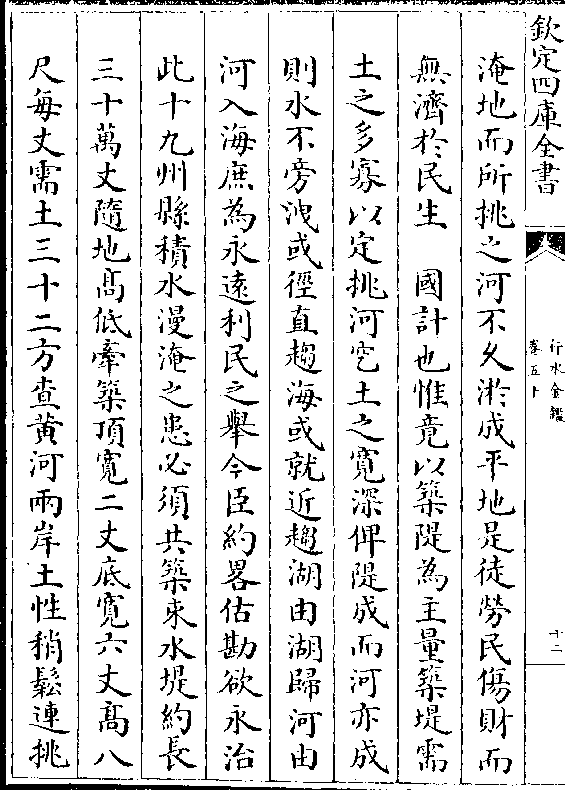 欽定四庫全書
行水金鑑
卷五十
十二
淹地而所挑之河不久淤成平地是徒勞民傷財而
無濟於民生　國計也惟竟以築隄為主量築堤需
土之多寡以定挑河空土之寬深俾隄成而河亦成
則水不旁洩或徑直趨海或就近趨湖由湖歸河由
河入海庶為永遠利民之舉今臣約畧估勘欲永治
此十九州縣積水漫淹之患必須共築束水堤約長
三十萬丈隨地髙低牽築頂寬二丈底寬六丈髙八
尺每丈需土三十二方查黃河兩岸土性稍鬆連挑